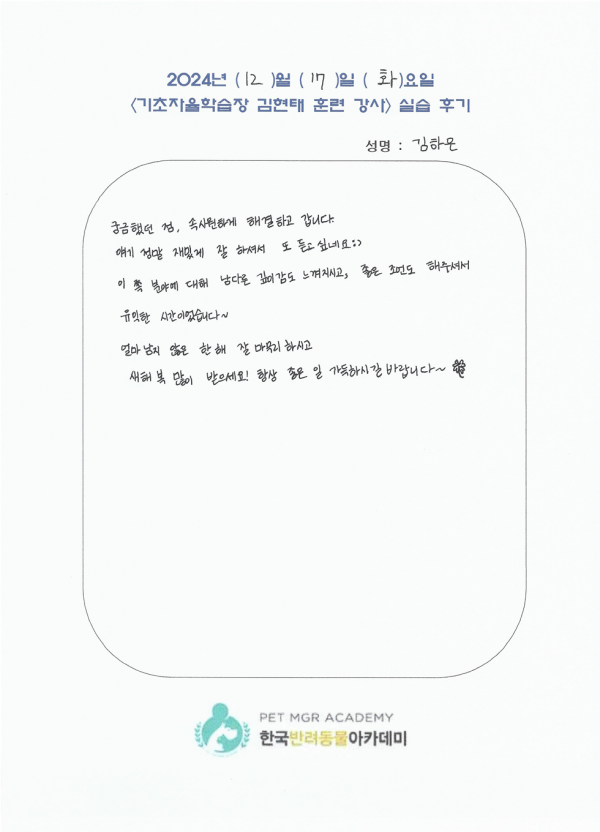 2024년 ( 12 )월 ( 17 )일 ( 화 )요일
<기초자율학습장 김현태 훈련 강사> 실습 후기
성명 : 김하은
궁금했던 점, 속시원하게 해결하고 갑니다.
얘기 정말 재밌게 잘 하셔서 또 듣고싶네요:)
이 쪽 분야에 대해 남다른 깊이감도 느껴지시고, 좋은 조언도 해주셔서
유익한 시간이었습니다~
얼마 남지 않은 한 해 잘 마무리 하시고
새해 복 많이 받으세요! 항상 좋은 일 가득하시길 바랍니다~
PET MGR ACADEMY
한국반려동물아카데미